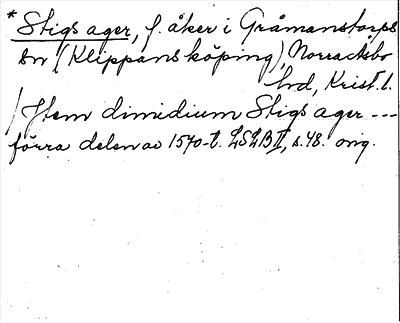 * Stigs ager, f. åker i Gråmanstorps
sn (Klippans köping), Norra Åsbo
hd, Krist. l.
/Item dimidium Stigs ager ---
förra delen av 1570-t. LSLB II, s. 48. orig.